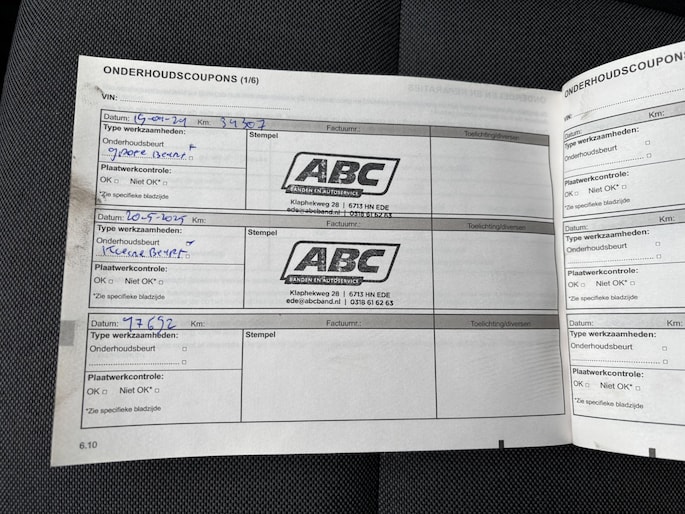 ONDERHOUDSCOUPONS (1/6)
VIN:
Datum: 15-01-24 Km: 34307 Factuurnr.: Toelichting/diversen:
Type werkzaamheden: Stempel
Onderhoudsbeurt
grote Beurt
Plaatwerkcontrole:
OK Niet OK*
*Zie specifieke bladzijde
ABC
BANDEN EN AUTOSERVICE
Klaphekweg 28 | 6713 HN EDE
ede@abcband.nl | 0318 61 62 63
Datum: 20-5-2025 Km: Factuurnr.: Toelichting/diversen:
Type werkzaamheden: Stempel
Onderhoudsbeurt
Kleine Beurt
Plaatwerkcontrole:
OK Niet OK*
*Zie specifieke bladzijde
ABC
BANDEN EN AUTOSERVICE
Klaphekweg 28 | 6713 HN EDE
ede@abcband.nl | 0318 61 62 63
Datum: 97692 Km: Factuurnr.: Toelichting/diversen:
Type werkzaamheden: Stempel
Onderhoudsbeurt
Plaatwerkcontrole:
OK Niet OK*
*Zie specifieke bladzijde
6.10
ONDERHOUDSCOUPONS
VIN:
Datum: Km:
Type werkzaamheden:
Onderhoudsbeurt
Plaatwerkcontrole:
OK Niet OK*
*Zie specifieke bladzijde
Datum: Km:
Type werkzaamheden:
Onderhoudsbeurt
Plaatwerkcontrole:
OK Niet OK*
*Zie specifieke bladzijde
Datum: Km:
Type werkzaamheden:
Onderhoudsbeurt
Plaatwerkcontrole:
OK Niet OK*
*Zie specifieke bladzijde